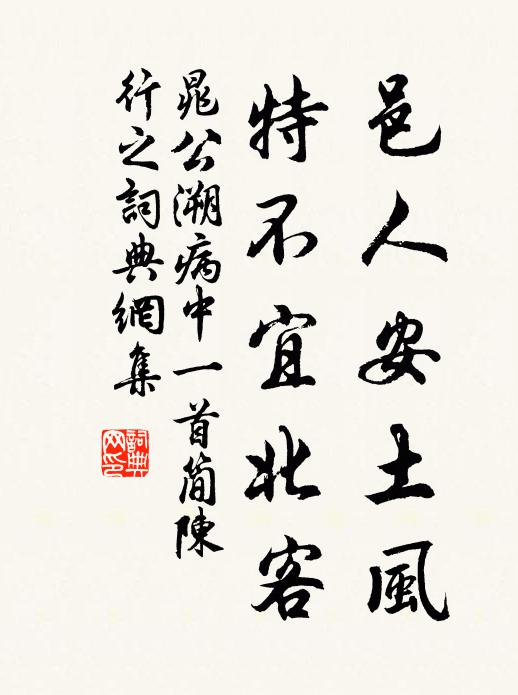 邑人安土風
特不宜北客
晁公溯病中一首簡陳
行之詞典網集
詞典網印